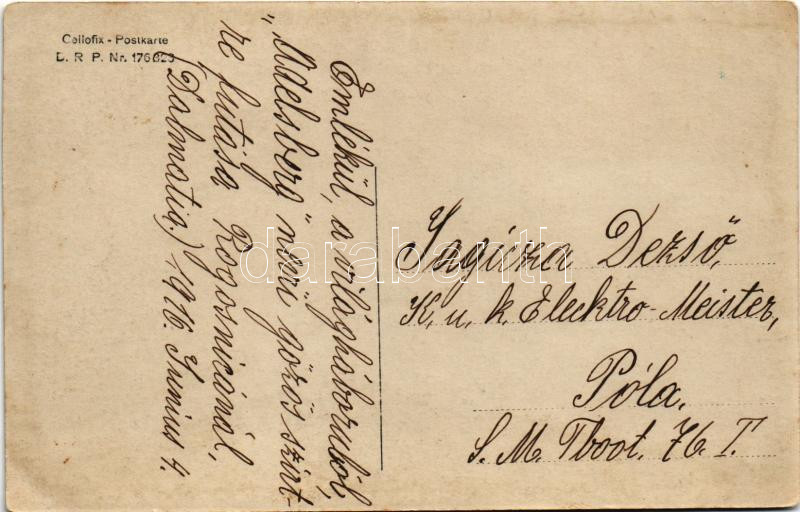 Cellofix - Postkarte
D. R. P. Nr. 176323
Emlékül, a világháborúból,
"Adelsberg" nevü gőzös szirt-
re futása Rogosnicánál,
(Dalmatia.) 1916. Junius 4.
Dezső,
K. u. k. Elektro-Meister,
Póla.
S. M. Tboot. 76. T.
darabanth